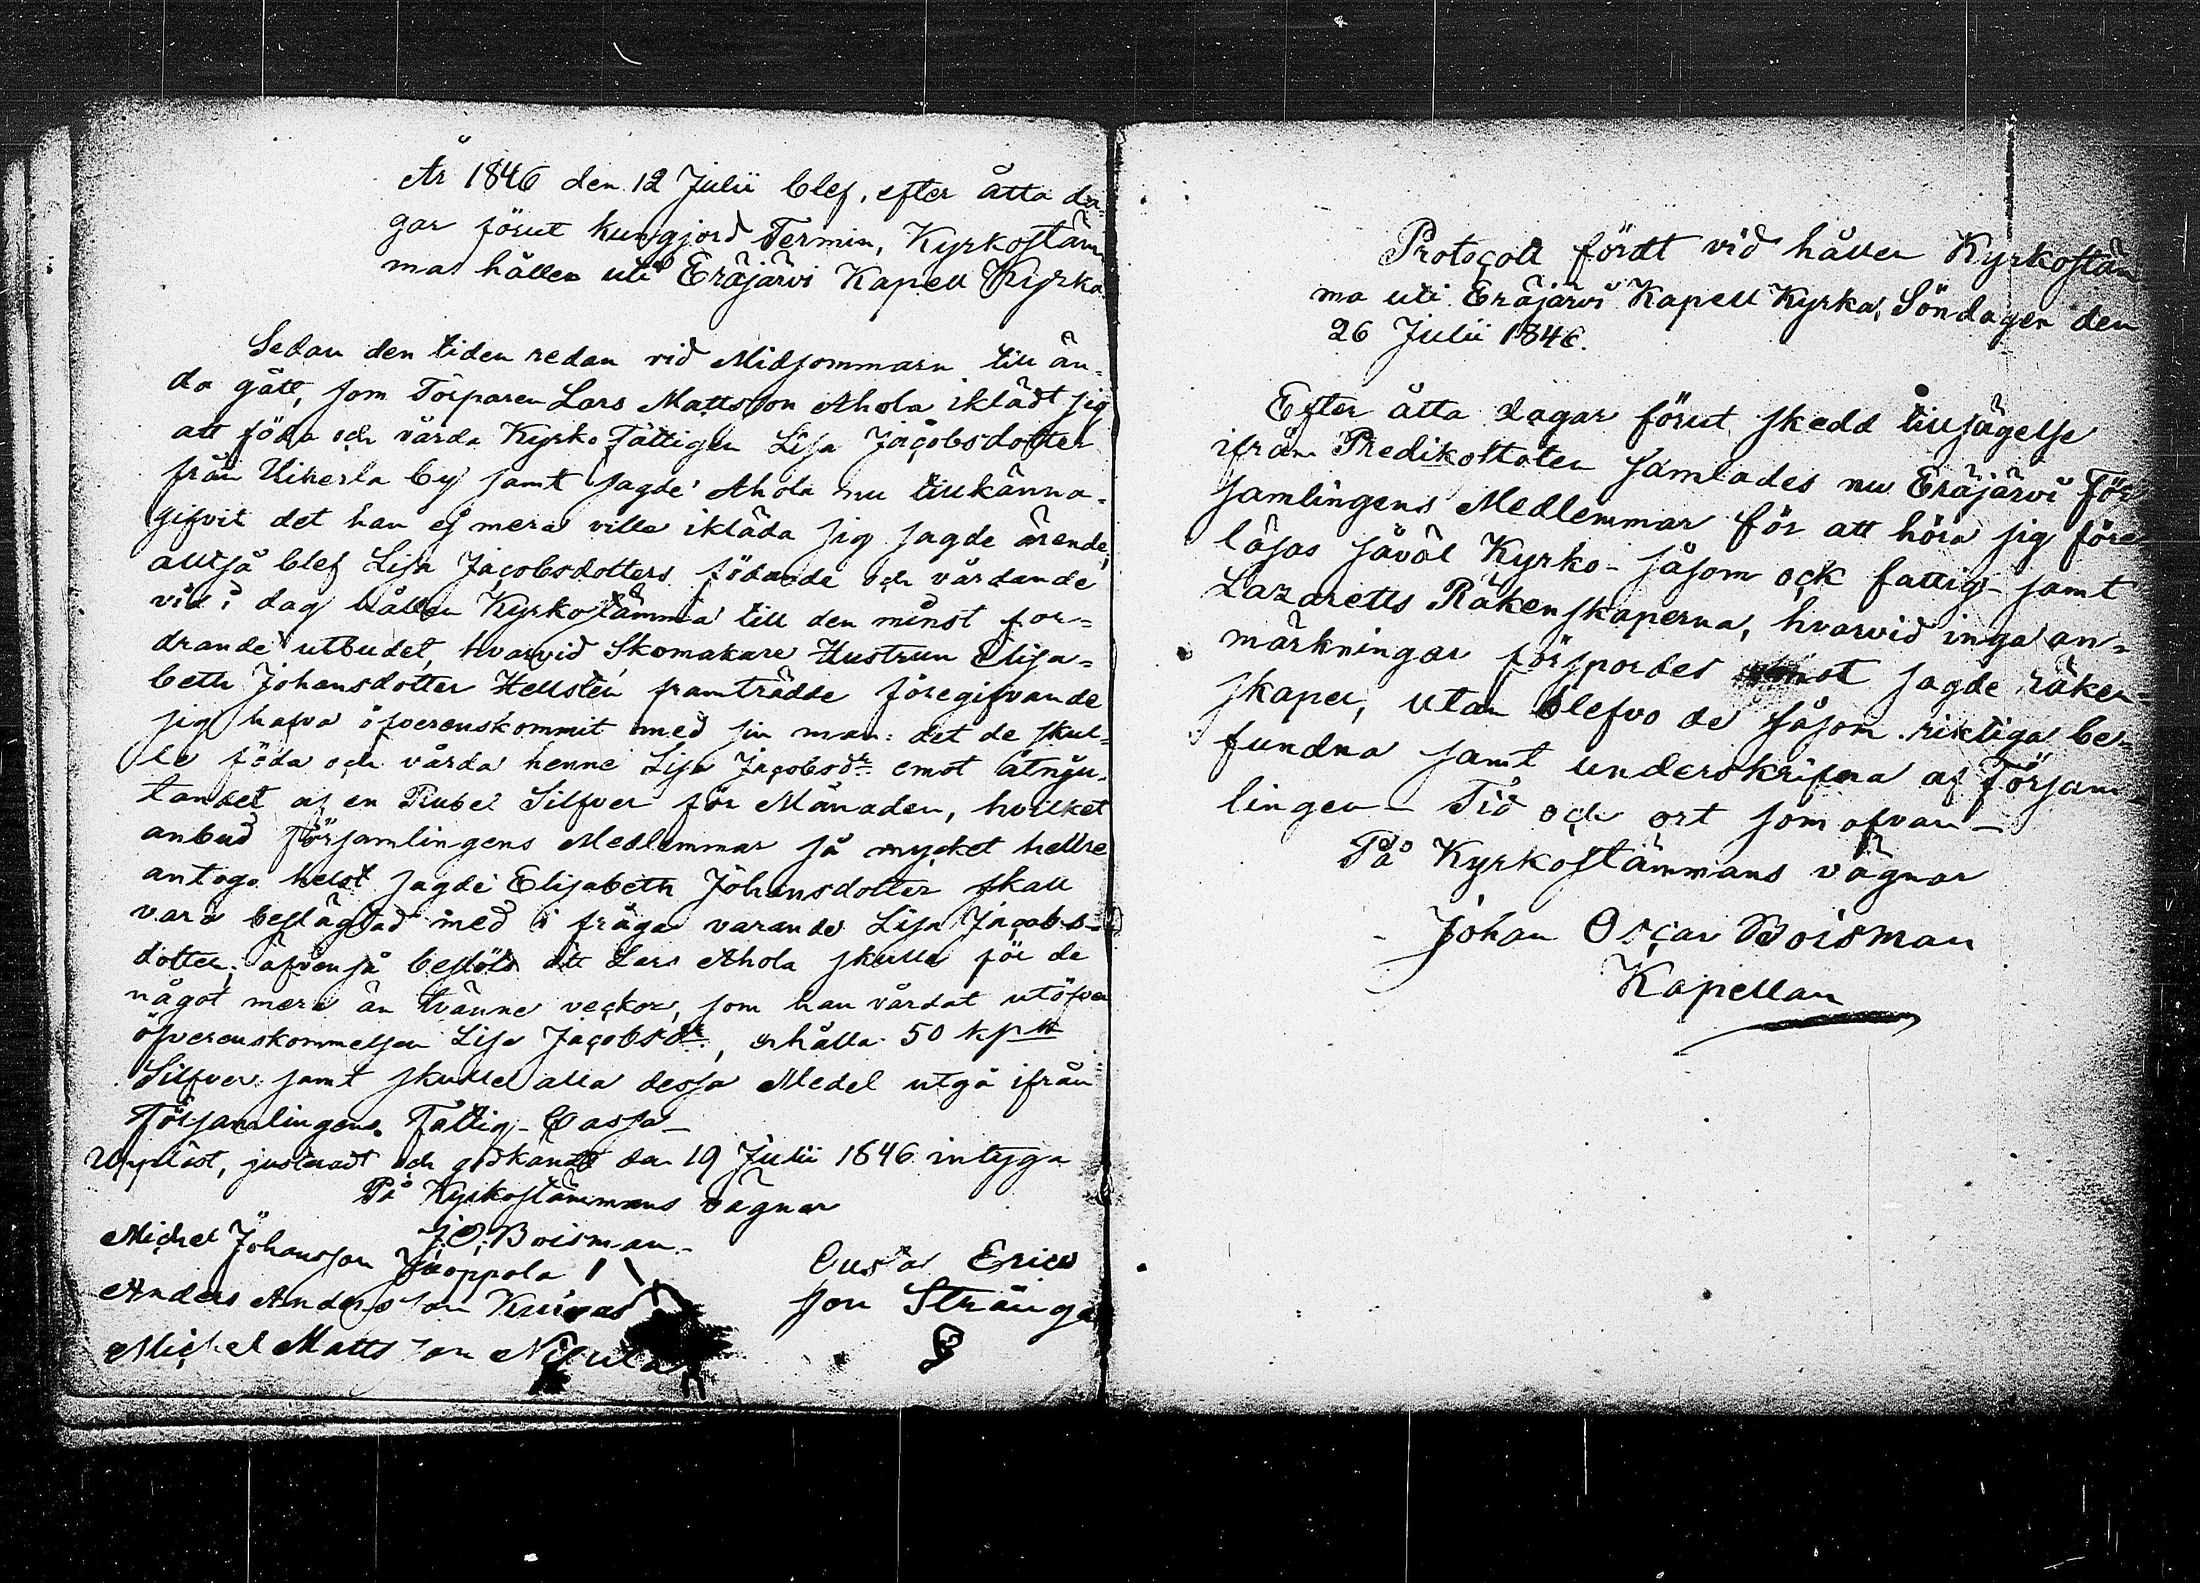 År 1846 den 12 Julii blef, efter åtta da-
gar förut kungjord Termin, Kyrkostäm
ma hållen uti Eräjärvi Kapell Kyrka.
Sedan den tiden redan vid Midsommarn till än-
da gått, som Torparen Lars Mattsson Ahola iklädt sig
att föda och vårda Kyrko Fattigen Lisa Jacobsdotter
från Uiherla by samt sagde Ahola nu tillkänna-
gifvit det han ej mera ville ikläda sig sagde ärende,
alltså blef Lisa Jacobsdotters födande och vårdande
vid i dag hållen Kyrkostämma till den minst for-
drande utbudet, hvarvid Skomakare Hustrun Elisa-
beth Johansdotter Hellstén framträdde föregifvande
sig hafva öfverenskommit med sin man: det de skul-
le föda och vårda henne Lisa Jacobsdr emot åtnju-
tandet af en Rubel Silfver för Månaden, hvilket
anbud Församlingens Medlemmar så mycket hellre
antogo helst sagde Elisabeth Johansdotter skall
vara beslägtad med i fråga varande Lisa Jacobs-
dotter; äfvenså beslöts att Lars Ahola skulle för de
något mera än tvänne veckor, som han vårdat utöfver
öfverenskommelsen Lisa Jacobsdr, erhålla 50 kop
Silfver samt skulle alla dessa Medel utgå ifrån
Församlingens Fattig-Cassa
Uppläst, justeradt och godkändt den 19 Julii 1846 intyga
På Kyrkostämmans vägnar
J.O. Boisman
Michel Johansson Jaoppola
Anders Andersson Kuivas
Michel Mattsson
Gusta Erics
son Stränga
Protocoll fördt vid hållen Kyrkostäm
ma uti Eräjärvi Kapell Kyrka, Söndagen den
26 Julii 1846.
Efter åtta dagar förut skedd tillsägelse
ifrån Predikostolen samlades nu Eräjärvi För
samlingens Medlemmar för att höra sig före
läsas såväl Kyrko- såsom ock fattig- samt
Lazaretts Räkenskaperna, hvarvid inga an-
märkningar förspordes emot sagde räken-
skaper, utan blefvo de såsom riktiga be-
fundna samt underskrifna af Försam-
lingen - Tid och ort som ofvan -
På Kyrkostämmans vägnar
Johan Oscar Boisman
Kapellan